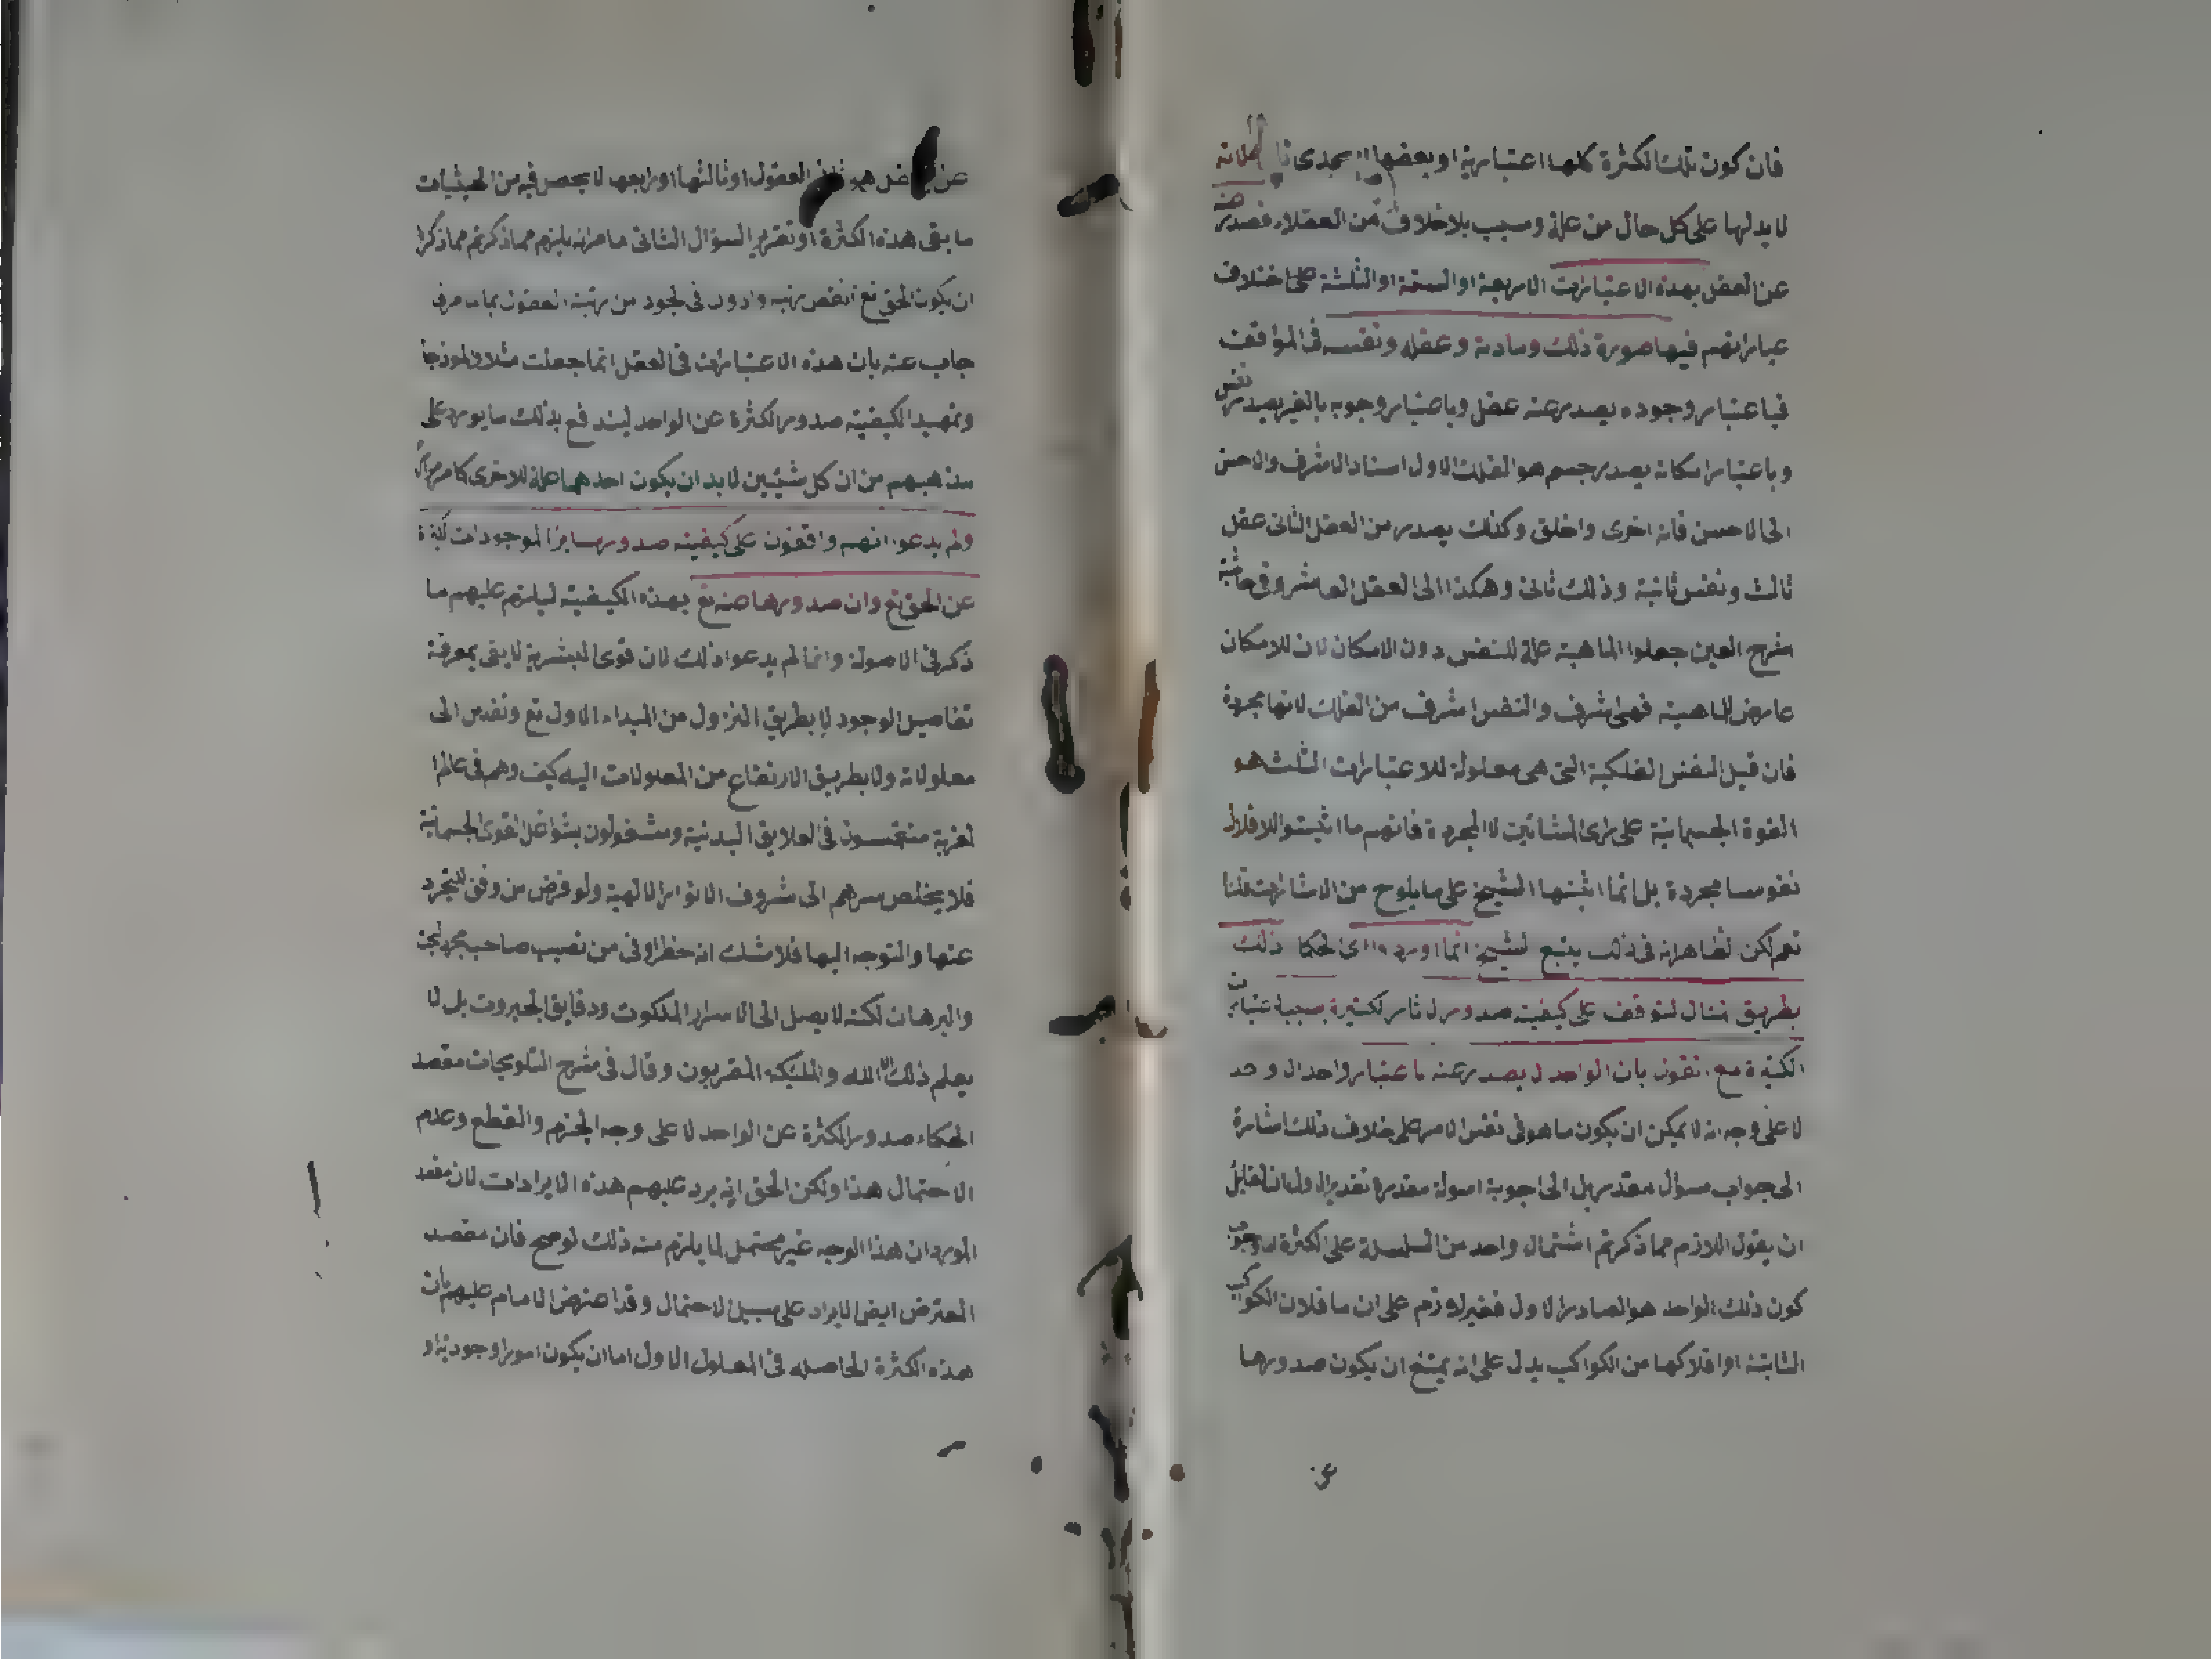 فان كون تلك الكثرة كلها اعتبارية او بعضها لا يجدى
لا بد لها على كل حال من علة وسبب بلا خلاف من العقلاء فصدر عنه
عن العقل بهذه الاعتبارات الاربعة او الستة او الثلثة على اختلاف
عباراتهم فيها صورة ذلك ومادته وعقله ونفسه فى المواقف
فباعتبار وجوده يصدر عنه عقل وباعتبار وجوبه بالغير يصدر نفس
وباعتبار امكانه يصدر جسم هو الفلك الاول اسنادا لاشرف والاحسن
الى الاحسن فانه احرى واخلق وكذلك يصدر من العقل الثانى عقل
ثالث ونفس ثانية وذلك ثانى وهكذا الى العقل العاشر وفى حاشية
شرح العين جعلوا الماهية علة للنفس دون الامكان لان للامكان
عارض للماهية فهى اشرف والنفس اشرف من الفلك لانها مجردة
فان قيل النفس الفلكية التى هى معلولة للاعتبارات الثلث هو
القوة الجسمانية على راى المشائين لا المجردة فانهم ما اثبتوا للافلاك
نفوسا مجردة بل انما اثبتها الشيخ على ما يلوح من الاشارات قلنا
نعم لكن لظاهر انه فى ذلك يتبع لشيخ انما اورد الحكما ذلك
بطريق لتوقف على كيفية صدور الاثار لكثيرة بسبب اعتبارات
الكثيرة مع بان الواحد لا يصدر عنه باعتبار واحد الا واحد
لا على وجه انه لا يمكن ان يكون ما هو فى نفس الامر على خلاف ذلك اشارة
الى جواب سوال مقدر بل الى اجوبة اسولة مقدرة تقدير الاول ان لقايل
ان يقول اللازم مما ذكرتم اشتمال واحد من السلسلة على الكثرة اما وجوب
كون ذلك الواحد هو الصادر الاول فغير لازم على ان ما قلان الكواكب
الثابتة او افلاكها من الكواكب يدل على انه يمتنع ان يكون صدورها
العقول او ثالثها او رابعها لا يحصى فيه من الحيثيات
ما بقى هذه الكثرة او تقرير السؤال الثانى ما مر انه يلزم مما ذكرتم مما ذكر
ان يكون الحق تع انقص رتبة وادون فى لجود من رتبة العقول
جاب عنه بان هذه الاعتبارات فى العقل انما جعلت مثلا وانموذجا
وتمهيد الكيفية صدور الكثرة عن الواحد ليندفع بذلك ما يورد على
مذهبهم من ان كل شيئين لا بد ان يكون احدهما علة للاخرى كما مر
ولم يدعوا انهم واقفون على كيفية صدور ساير الموجودات
عن الحق تع وان صدورها عنه تع بهذه الكيفية ليلزم عليهم ما
ذكر فى الاسولة وانما لم يدعوا ذلك لان قوى البشرية لا يفى بمعرفة
تفاصيل الوجود لا بطريق النزول من المبداء الاول تع وتقدس الى
معلولاته ولا بطريق الارتفاع من المعلولات اليه كيف وهم فى عالم
لغربة منغمسون فى العلايق البدنية ومشغولون بشواغل القوى الجسمانية
فلا يخلص سرهم الى شروف الانوار الالهية ولو فرض من وفق للتجرد
عنها والتوجه اليها فلا شك انه حظ اوفى من نصيب صاحب
والبرهان لكنه لا يصل الى الاسرار الملكوت ودقايق الجبروت بل لا
يعلم ذلك الا الله والمليكة المقربون وقال فى شرح التلويحات مقصد
الحكماء صدور الكثرة عن الواحد لا على وجه الجزم والقطع وعدم
الاحتمال هذا ولكن الحق انه يرد عليهم هذه الايرادات لان مقصد
المورد ان هذا الوجه غير محتمل لما يلزم منه ذلك لو صح فان مقصد
المعترض ايض الايراد على سبيل الاحتمال وقد اعترض الامام عليهم بان
هذه الكثرة الحاصله فى المعلول الاول اما ان يكون امورا وجودية او